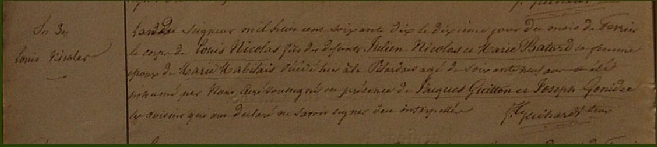 Sre De
Louis Nicolas
L'an du Seigneur mil huit cent soixante dix le dixième jour du mois de Février
le corps de Louis Nicolas fils des défunts Julien Nicolas et Marie Batard sa femme
époux de Marie Habilais décédé hier à la agé de soixante neuf ans a été
inhumé par Nous curé soussigné en présence de Jacques Guillou et Joseph
les voisins qui ont déclaré ne savoir signer de ce interpellés